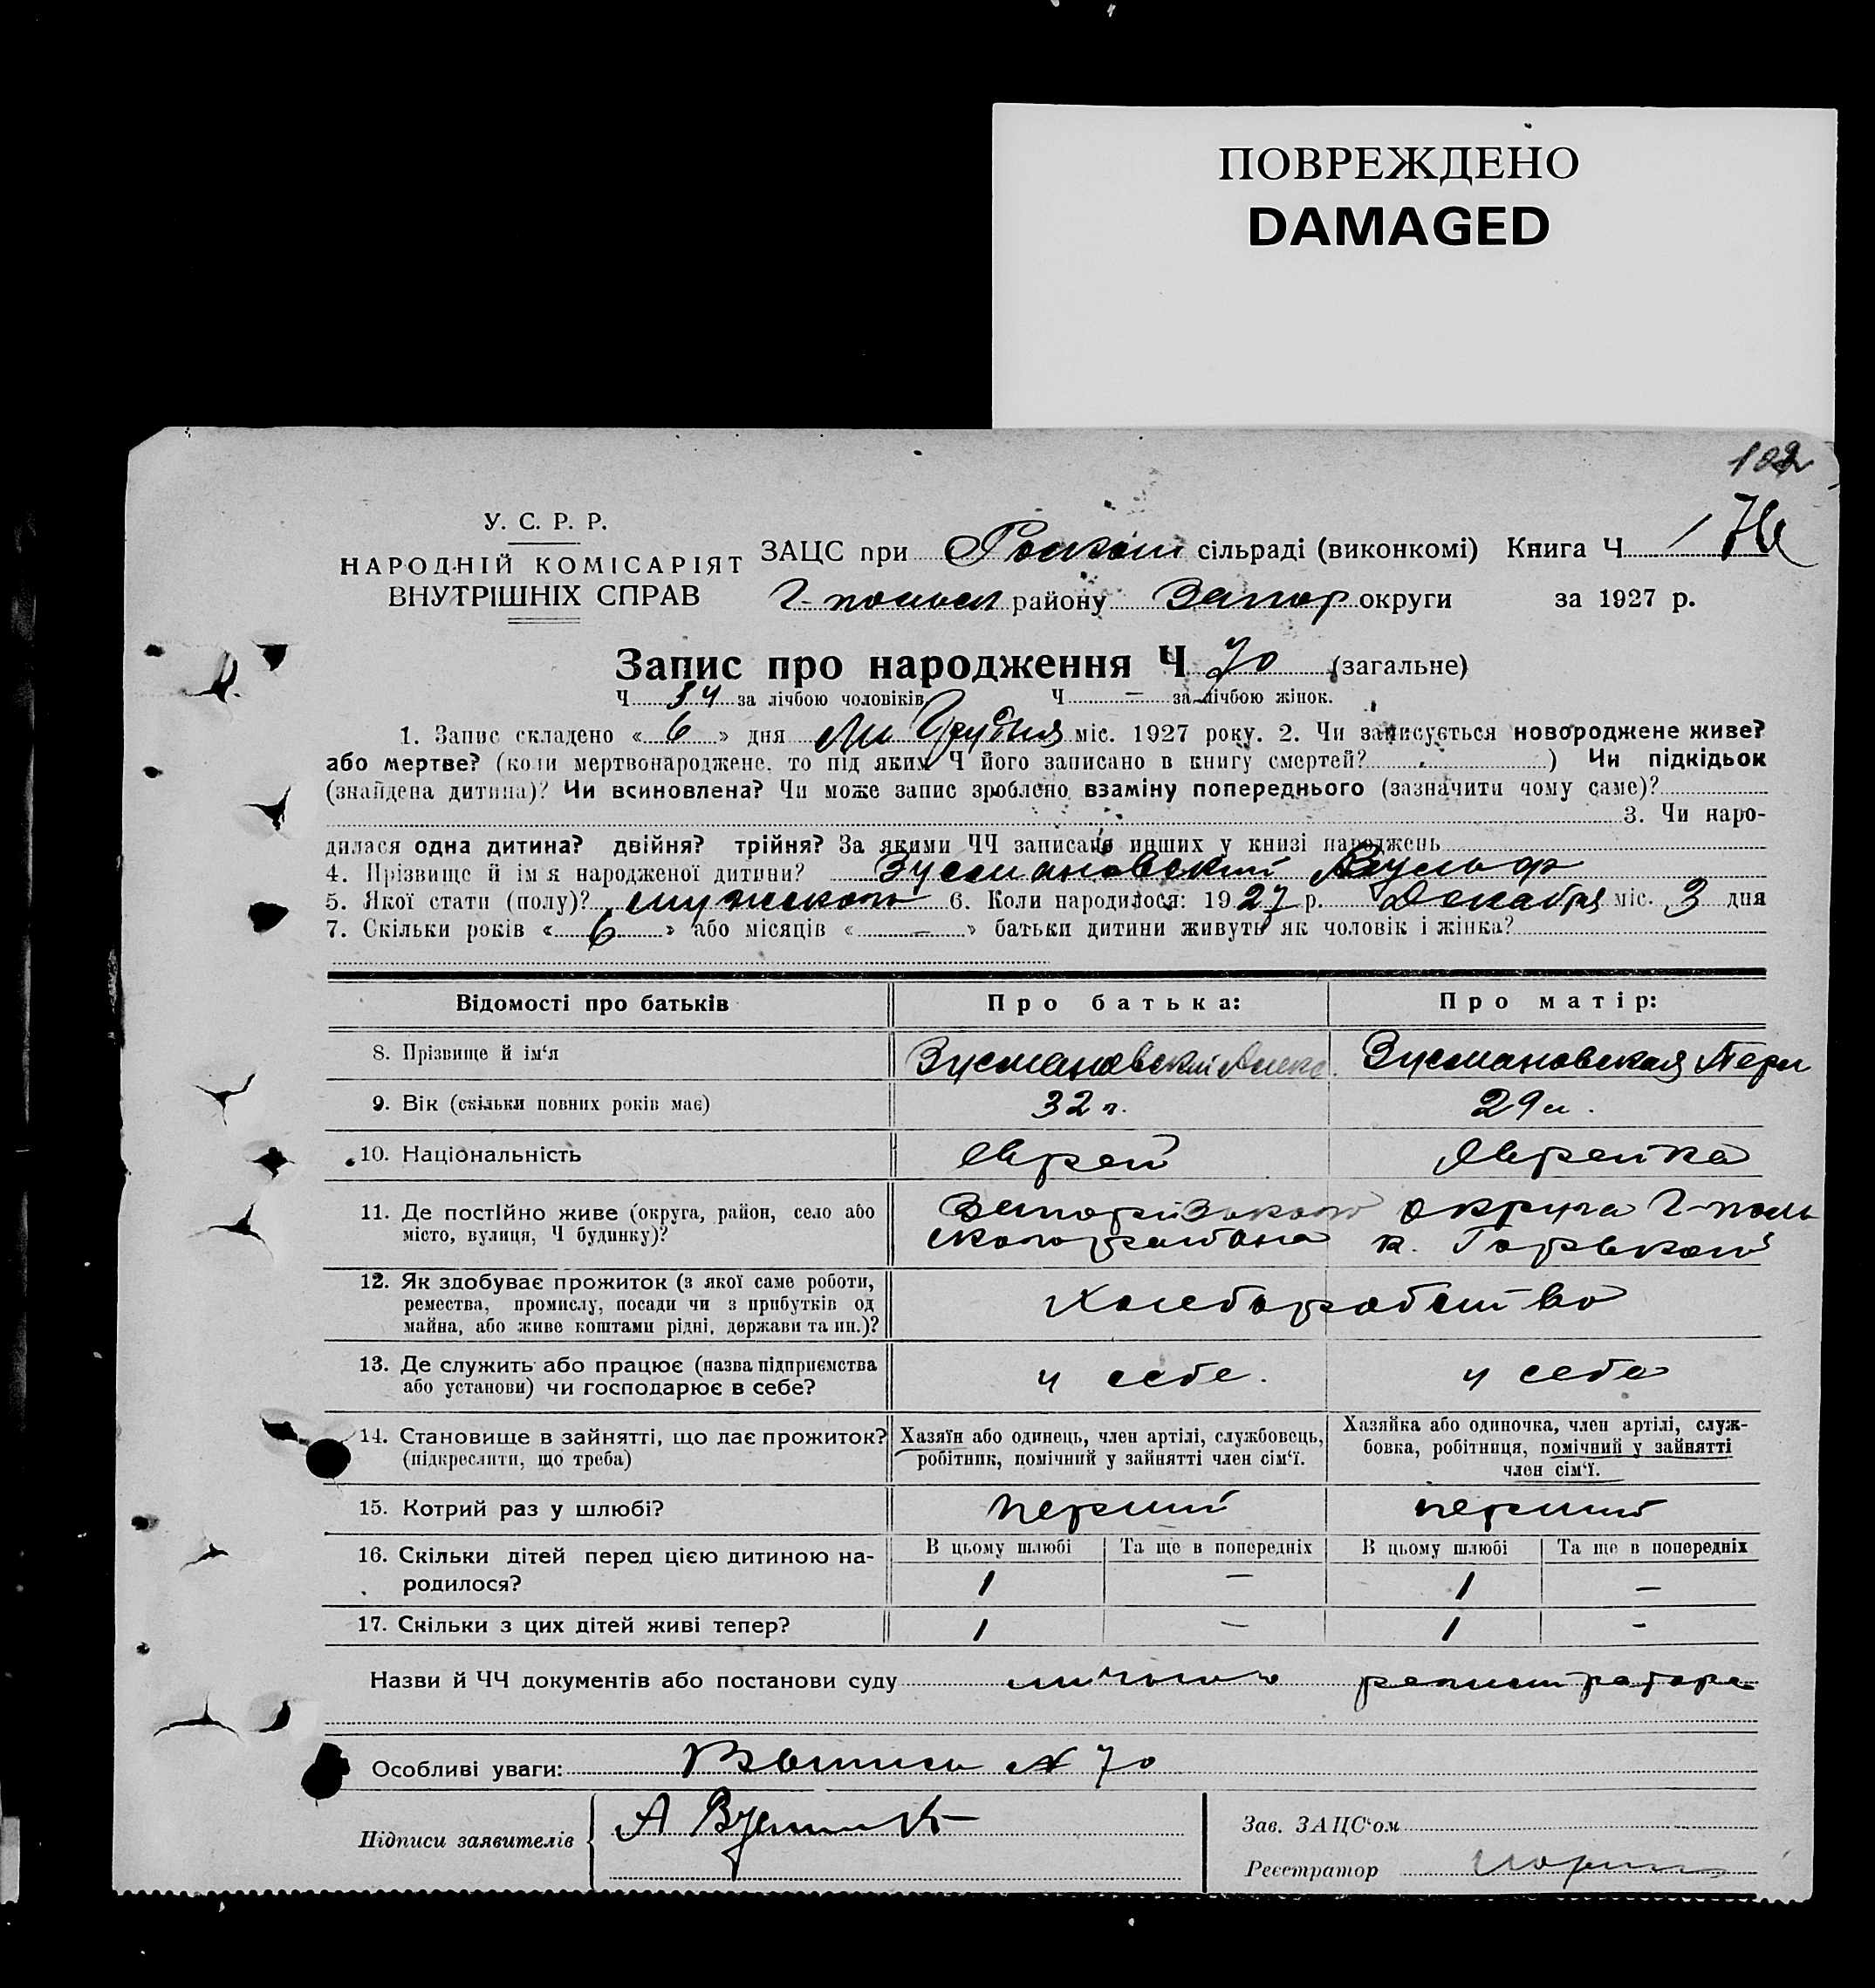 ПОВРЕЖДЕНО
DAMAGED
102
У. С. Р. Р.
НАРОДНІЙ КОМІСАРІЯТ
ВНУТРІШНІХ СПРАВ
ЗАЦС при сільраді (виконкомі) Книга Ч 1
району Запор округи за 1927 р.
Запис про народження Ч 70 (загальне)
Ч 34 за лічбою чоловіків Ч – за лічбою жінок.
1. Запис складено « 6 » дня Грудня міс. 1927 року. 2. Чи записується новороджене живе?
або мертве? (коли мертвонароджене, то під яким Ч його записано в книгу смертей? ) Чи підкідьок
(знайдена дитина)? Чи всиновлена? Чи може запис зроблено взаміну попереднього (зазначити чому саме)?
3. Чи наро-
дилася одна дитина? двійня? трійня? За якими ЧЧ записано инших у книзі народжень
4. Прізвище й ім'я народженої дитини? Зусмановский Вульф
5. Якої стати (полу)? мужского 6. Коли народилося: 1927 р. Декабря міс. 3 дня
7. Скільки років « 6 » або місяців « – » батьки дитини живуть як чоловік і жінка?
Відомості про батьків Про батька: Про матір:
8. Прізвище й ім'я Зусмановский Зусмановская Перл
9. Вік (скільки повних років має) 32 г. 29 л.
10. Національність Еврей Еврейка
11. Де постійно живе (округа, район, село або Запорізького округа Г-поль
місто, вулиця, Ч будинку)? ского района к. Горькой
12. Як здобуває прожиток (з якої саме роботи,
ремества, промислу, посади чи з прибутків од
майна, або живе коштами рідні, держави та ин.)? Хлеборобство
13. Де служить або працює (назва підприємства
або установи) чи господарює в себе? у себе. у себе
14. Становище в зайнятті, що дає прожиток?
(підкреслити, що треба)
Хазяїн або одинець, член артілі, службовець,
робітник, помічний у зайнятті член сім'ї.
Хазяйка або одиночка, член артілі, служ-
бовка, робітниця, помічний у зайнятті
член сім'ї.
15. Котрий раз у шлюбі? перший перший
16. Скільки дітей перед цією дитиною на-
родилося?
В цьому шлюбі Та ще в попередніх В цьому шлюбі Та ще в попередніх
1 – 1 –
17. Скільки з цих дітей живі тепер? 1 – 1 -
Назви й ЧЧ документів або постанови суду
Особливі уваги: Выписи № 70
Підписи заявителів
Зав. ЗАЦС'ом
Реєстратор